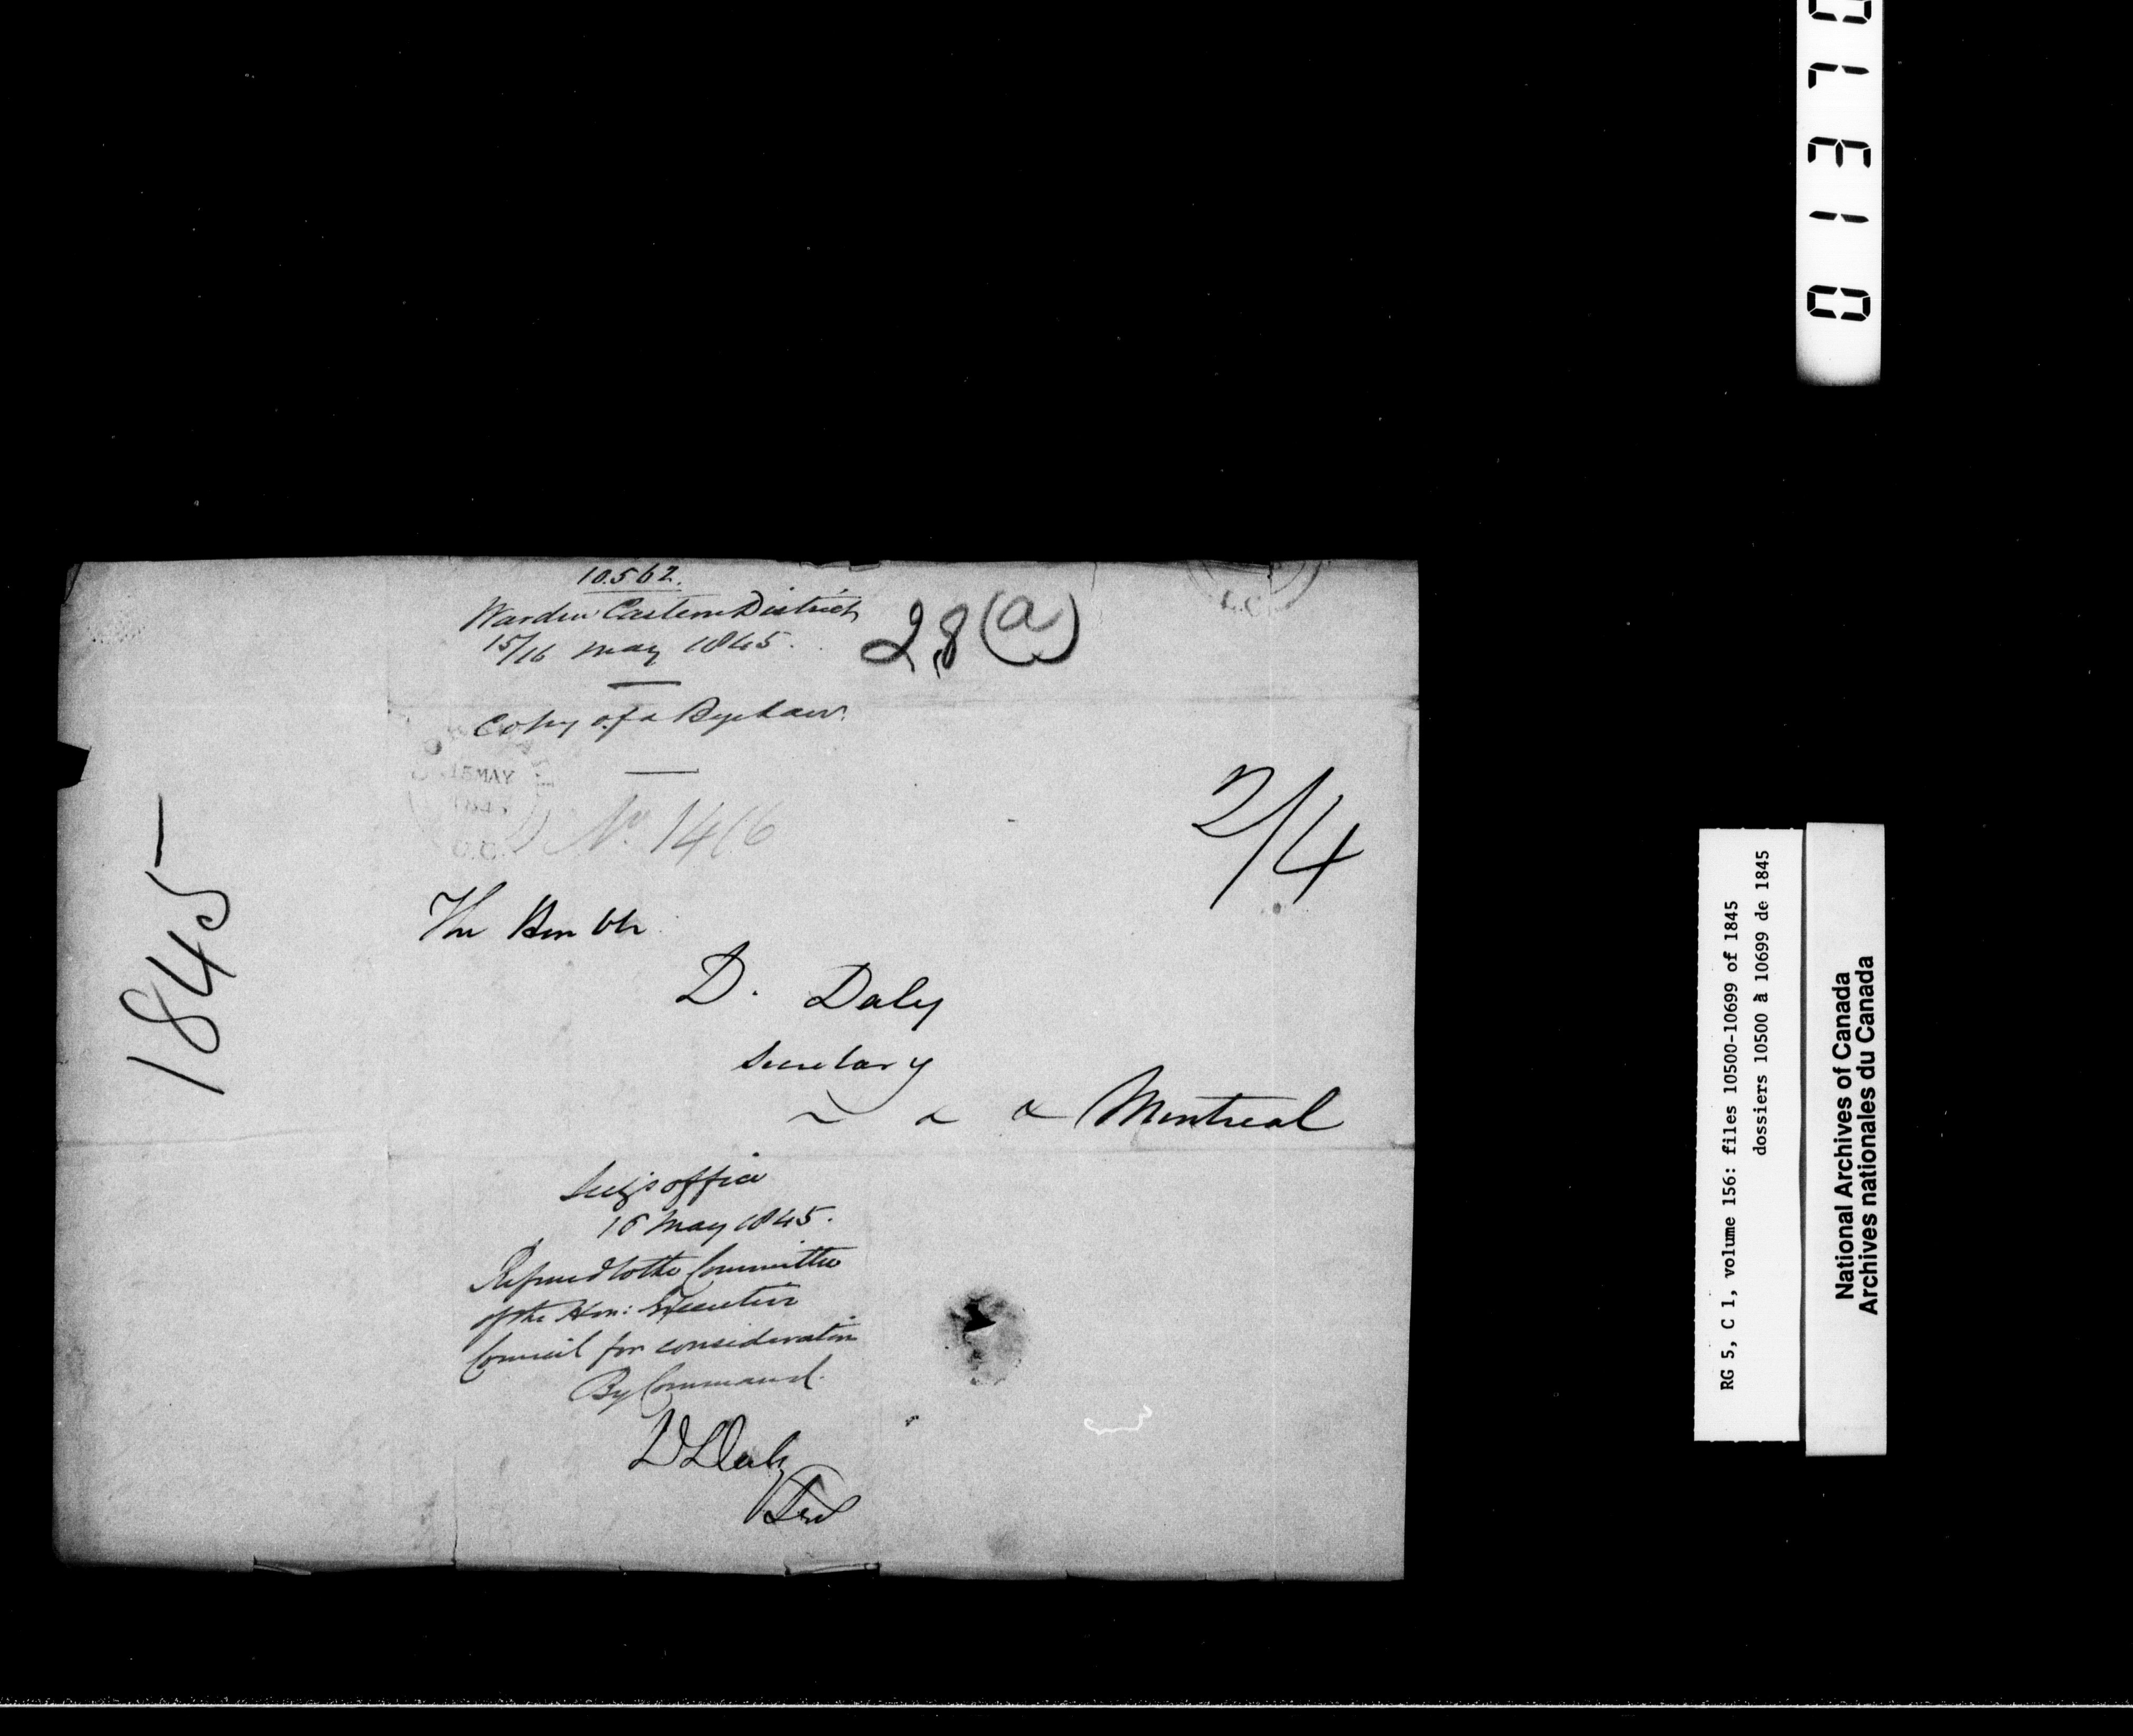 10.562.
Warden Eastern District
15/16 May 1845.
28(a)
Copy of a Bye Law.
15 MAY
No. 1416
2/4
1845
The Honble
D. Daly
Secretary
Montreal
Secy's office
16 May 1845.
Referred to the Committee
of the Hon: Executive
Council for consideration
By Command.
D Daly
Secy
RG 5, C 1, volume 156: files 10500-10699 of 1845
dossiers 10500 à 10699 de 1845
National Archives of Canada
Archives nationales du Canada